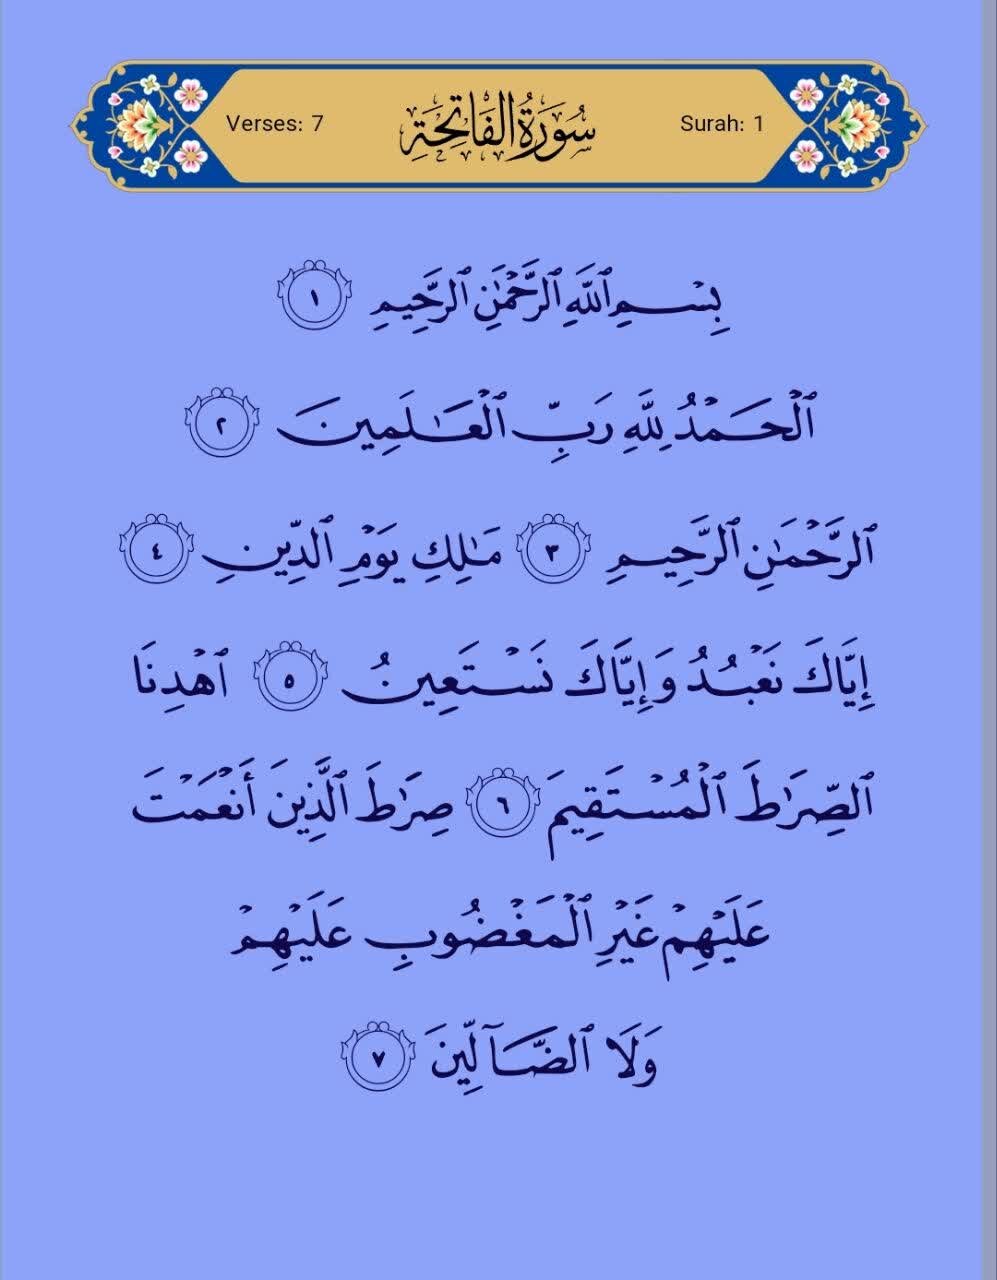 Verses: 7 سُورَةُ الفَاتِحَةِ Surah: 1
بِسۡمِ ٱللَّهِ ٱلرَّحۡمَٰنِ ٱلرَّحِيمِ ١
ٱلۡحَمۡدُ لِلَّهِ رَبِّ ٱلۡعَٰلَمِينَ ٢
ٱلرَّحۡمَٰنِ ٱلرَّحِيمِ ٣ مَٰلِكِ يَوۡمِ ٱلدِّينِ ٤
إِيَّاكَ نَعۡبُدُ وَإِيَّاكَ نَسۡتَعِينُ ٥ ٱهۡدِنَا
ٱلصِّرَٰطَ ٱلۡمُسۡتَقِيمَ ٦ صِرَٰطَ ٱلَّذِينَ أَنۡعَمۡتَ
عَلَيۡهِمۡ غَيۡرِ ٱلۡمَغۡضُوبِ عَلَيۡهِمۡ
وَلَا ٱلضَّآلِّينَ ٧